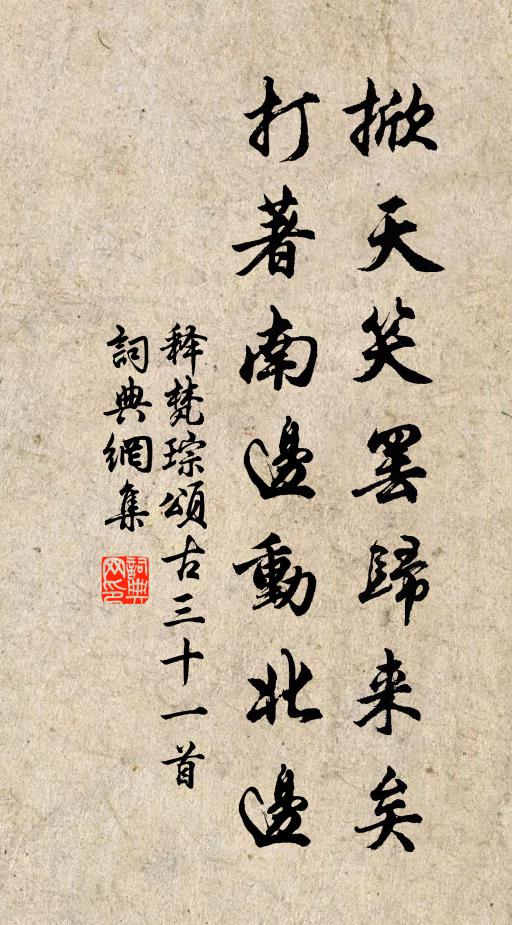 掀天笑罢歸来矣
打著南邊動北邊
释梵琮頌古三十一首
詞典網集
詞典网印